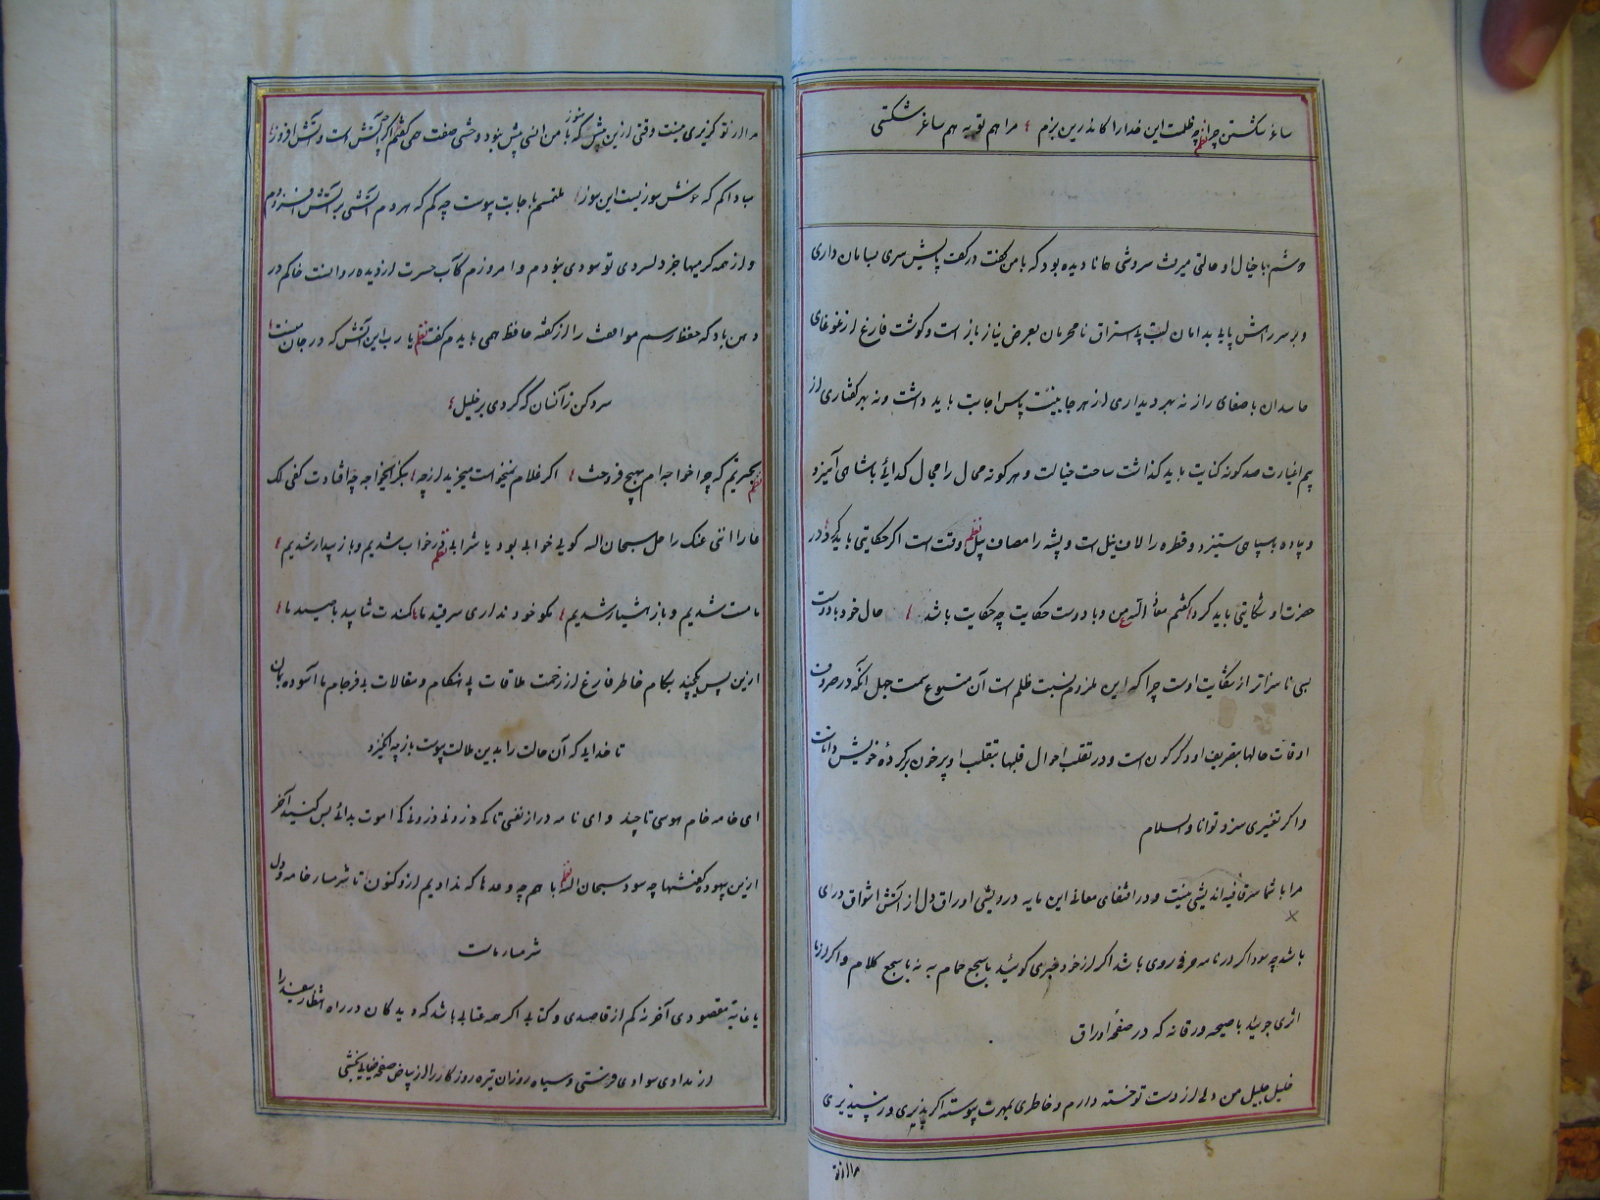 ساغر شکستن چرا نظم چه ظلمت این خدارا کاندرین بزم مرا هم توبه هم ساغر شکستی
دوشم با خیال او حالتی میرفت سروشی مانا دیده بود که با من گفت در کفت پایش سری بسامان داری
و بر سر راهش پایی بدامان لبت بی استراق نامحرمان بعرض نیاز باز است و گوشت فارغ از غوغای
حاسدان باصغای راز نه بهر دیداری از هر جا بینت پاس اجابت باید داشت و نه بهر گفتاری از
بیم اغیارت صد گونه کنایت باید گذاشت ساحت خیالت و هر گونه محال را مجال گدائی باشاهی آمیزد
و پیاده بسپاهی ستیزد و قطره را لاف نیل است و پشه را مصاف پیل نظم وقت است اگر حکایتی باید کرد در
حضرت او شکایتی باید کرد گفتم معاذ الله ع من و با دوست حکایت چه حکایت باشد حال خود با دوست
بسی ناسزاتر از شکایت اوست چرا که این ملزوم نسبت ظلم است آن متبوع سمت جهل آنکه در صروف
اوقات حالها بتصریف او دگرگون است و در تقلب احوال قلبها بتقلب او پر خون بر کرده خویش داناست
و اگر تغییری سزد توانا والسلام
مرا با شما سر قافیه اندیشی نیست و در اقتفای معانی این مایه درویشی اوراق دل از آتش اشواق درای
باشد چه سود اگر در نامه حرفی روی باشد اگر از خود خبری گوئید با سجع حمام به نه با سجع کلام و اگر از ما
اثری جوئید با صیحه ورقا نه که در صفحه اوراق
خلیل جلیل من دلی از دست تو خسته دارم و خاطری بمهرت پیوسته اگر پذیری ور نپذیری
مرا از تو
مرا از تو گزیری نیست وقتی از این پیش که با من انسی بیش بود و حشی صفت همی گفتم اگر چه آتش است و آتش افروز
مبادا کم که خوش سوزیست این سوز ملتمسم باجابت پیوست چه کم که هر دم آتشی بر آتش افزودم
و از همه گرمیها جز دلسردی تو سودی نبودم و امروزم کآب حسرت از دیده روانست خاکم در
دهن باد که حفظ رسم موافقت را از گفته حافظ همی بایدم گفت نظم یا رب این آتش که در جان منست
سرد کن زآنسان که کردی بر خلیل
نظم بحیرتم که چرا خواجه‌ام بهیچ فروخت اگر غلام نمیخواست میخرید از چه بنگر ای خواجه چه افتادت کفی لک
عارا انی عنک راحل سبحان الله گویی خوابی بود یا شرابی نظم در خواب شدیم و باز بیدار شدیم
مست شدیم و باز هشیار شدیم مگو خود نداری سر قید ما کمندت شاید بصید ما
ازین پس یکچند بکام خاطر فارغ از زحمت طاقات بی هنگام و مقالات بد فرجام ما آسوده بمان
تا خدایی که آن حالت را بدین طالت پیوست باز چه انگیزد
ای خامه خام هوسی تا چند و ای نامه دراز نفسی تا کی دزدنی دزدنی که اموت بدائی بس کنید آخر
ازین بیهوده گفتنها چه سود سبحان الله نظم با هم چه وعدها که ندادیم از و کنون تا شرمسار خامه و دل
شرمسار ماست
یا غایة مقصودی آخر نه کم از قاصدی و کتابی اگر همه عتابی باشد که دیدگان در راه انتظار سفید را
از مدادی سوادی فرستی و سیاه روزان تیره روزگار را از بیاض صفحه ضیائی بخشی